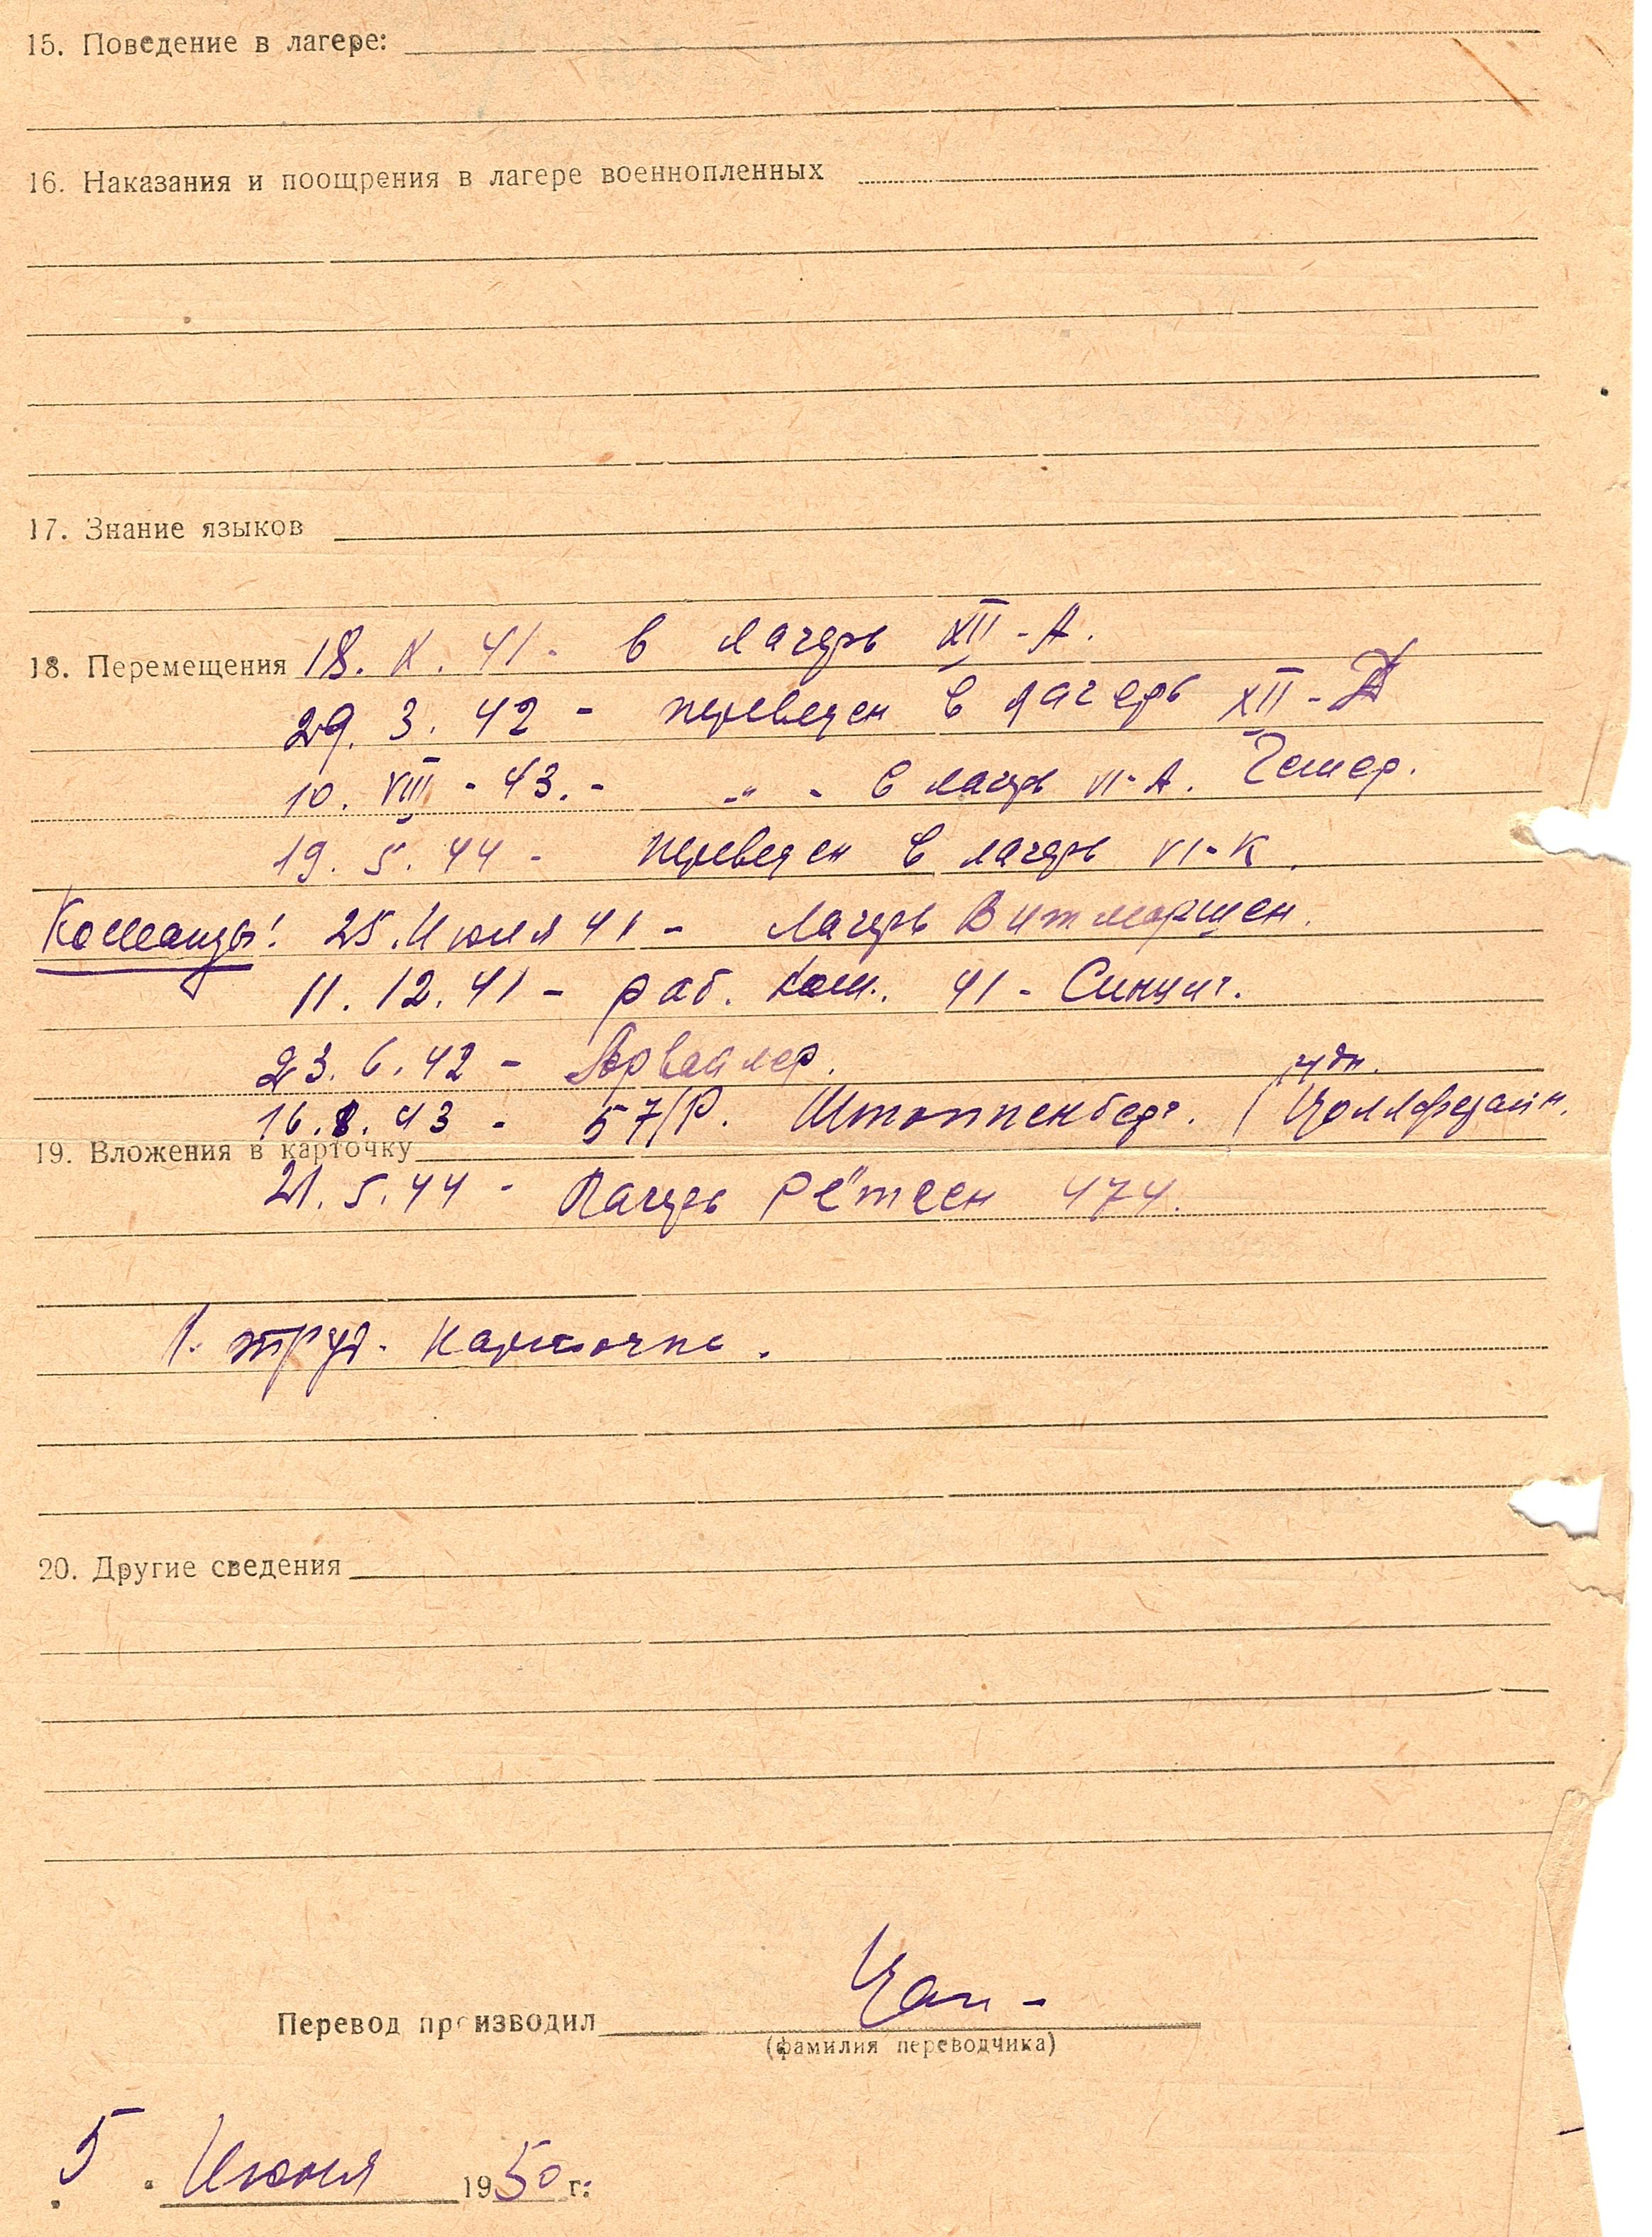 15. Поведение в лагере:
16. Наказания и поощрения в лагере военнопленных
17. Знание языков
18. Перемещения 18. X. 41 - в лагерь XII-А.
29. 3. 42 - переведен в лагерь XII-Д
10. VIII - 43. - -"- в лагерь VI-А. Гемер.
19. 5. 44 - переведен в лагерь VI-К.
Команды: 25. Июля 41 - лагерь Витмаршен.
11. 12. 41 - раб. ком. 41 - Синциг.
23. 6. 42 - Арвайлер.
16. 8. 43 - 57/Р. Штоппенберг. / Цолльферайн.
19. Вложения в карточку
21. 5. 44 - Лагерь 474.
1. труд. карточка.
20. Другие сведения
Перевод производил
(фамилия переводчика)
5 Июня 1950 г: